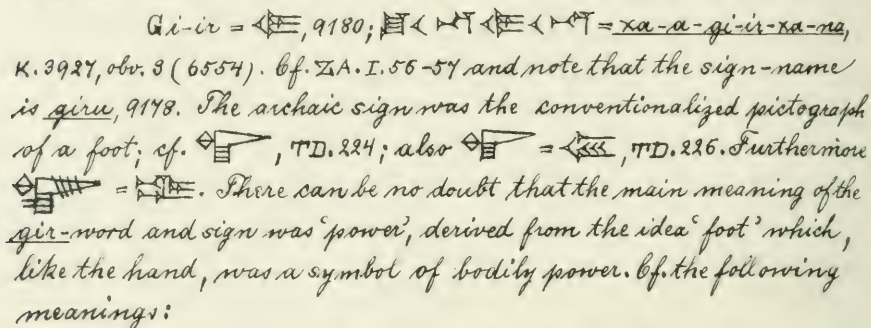 Gi-ir = , 9180; = xa-a-gi-ir-xa-na,
K. 3927, obv. 3 (6554). Cf. ZA. I. 56-57 and note that the sign-name
is giru, 9178. The archaic sign was the conventionalized pictograph
of a foot; cf. , TD. 224; also = , TD. 226. Furthermore
= . There can be no doubt that the main meaning of the
gir-word and sign was 'power', derived from the idea 'foot' which,
like the hand, was a symbol of bodily power. Cf. the following
meanings: